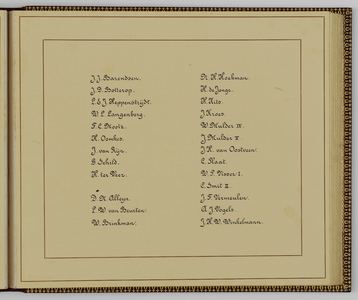 J. J. Barendsen.
J. D. Botterop.
L. E. J. Heppenstrijdt.
W. L. Langenberg.
F. C.
H. Oomkes.
J. van Rijn.
G. Schild.
H. ter Veer.
D. N. Alleijn.
L. W. van Beurten.
W. Brinkman.
Dr. H. Hoekman.
H. de Jonge.
H. Kits.
J. Kroes.
W. Mulder IV.
J. Mulder V.
J. H. van Oostveen.
C. Plaat.
W. F. Visser I.
C. Smit II.
J. F. Vermeulen.
A. J. Vogels.
J. H. W. Winkelmann.